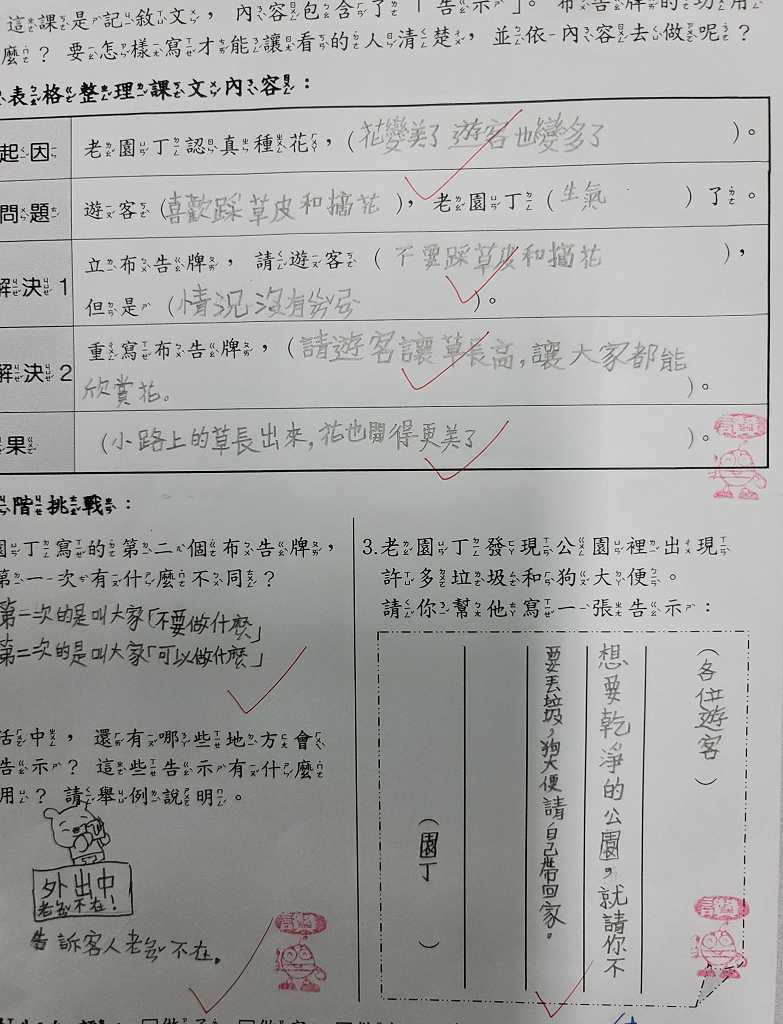 這課是記敘文，內容包含了「告示」。布告牌的功用
麼？要怎樣寫才能讓看的人清楚，並依內容去做呢？
表格整理課文內容：
起因 老園丁認真種花，（花變美了遊客也變多了）。
問題 遊客（喜歡踩草皮和摘花），老園丁（生氣）了。
解決1 立布告牌，請遊客（不要踩草皮和摘花），
但是（情況沒有ㄍㄞˇ）。
解決2 重寫布告牌，（請遊客讓草長高，讓大家都能
欣賞花。）。
果 （小路上的草長出來，花也開得更美了）。
階挑戰：
園丁寫的第二個布告牌，
第一次有什麼不同？
第一次的是叫大家「不要做什麼」
第二次的是叫大家「可以做什麼」
活中，還有哪些地方會
告示？這些告示有什麼
用？請舉例說明。
外出中
不在！
告訴客人老不在。
3.老園丁發現公園裡出現
許多垃圾和狗大便。
請你幫他寫一張告示：
（各位遊客）
想要乾淨的公園，就請你不
要丟垃圾，狗大便請自己帶回家。
（園丁）